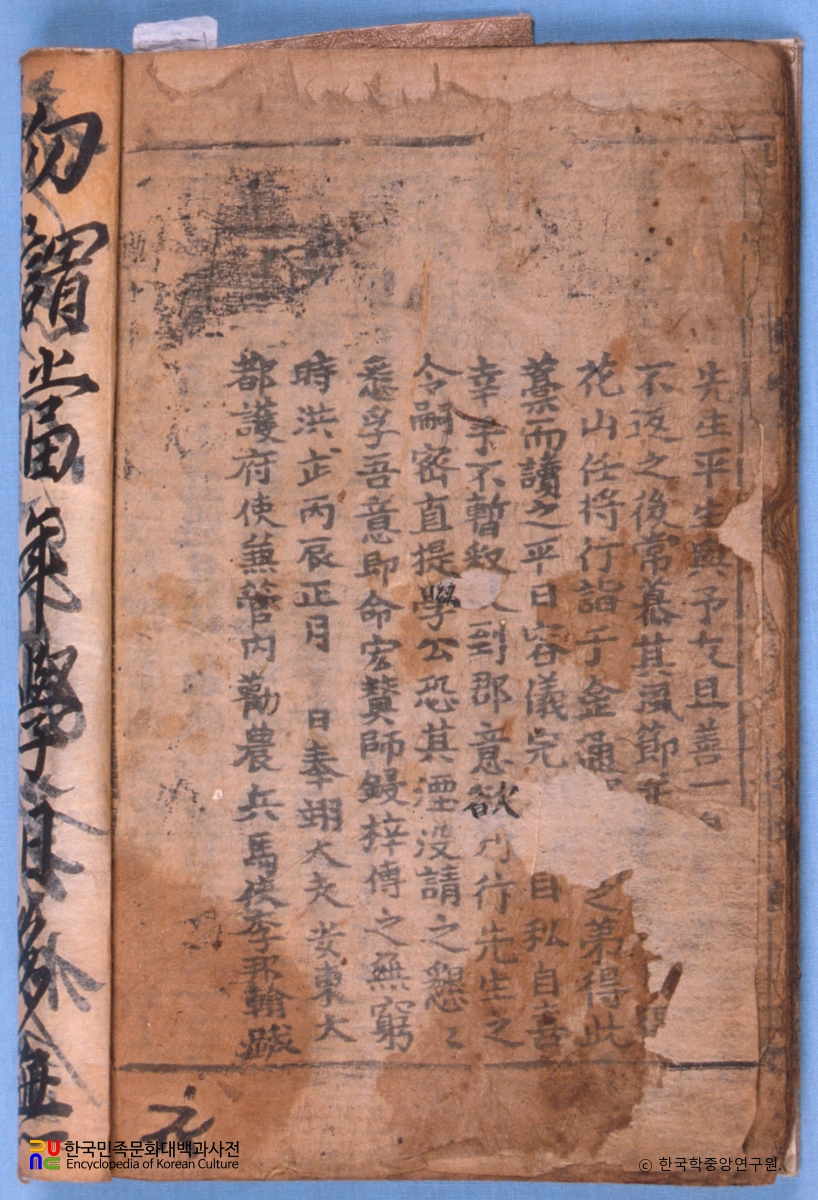 先生平生與予友且善一
不返之後常慕其風節
花山任將行詣于金
之第得此
藁而讀之平日容儀完
自私自喜
幸手不暫釋 到郡意欲刊行先生之
令嗣密直提學公恐其湮没請之懇〻
悉孚吾意即命宏賛師鋟梓傳之無窮
時洪武丙辰正月 日奉翊大夫安東大
都護府使兼管内勸農兵馬使李邦翰跋
勿謂當年學日多無
한국민족문화대백과사전
Encyclopedia of Korean Culture
© 한국학중앙연구원.